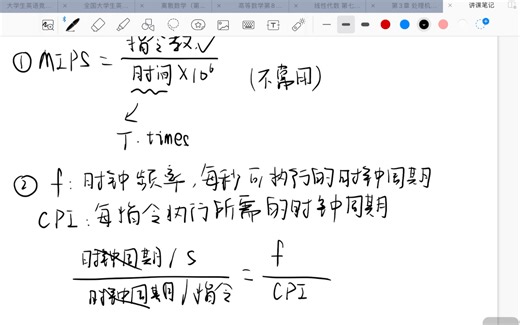 大学生英语竞...
全国大学生英...
离散数学（第...
高等数学第8...
线性代数 第七...
第3章 处理机...
讲课笔记
① MIPS = 指令数 / 时间×10⁶ (不常用)
T. times
② f: 时钟频率, 每秒可执行的时钟周期
CPI: 每指令执行所需的时钟周期
时钟周期/s / 时钟周期/指令 = f / CPI